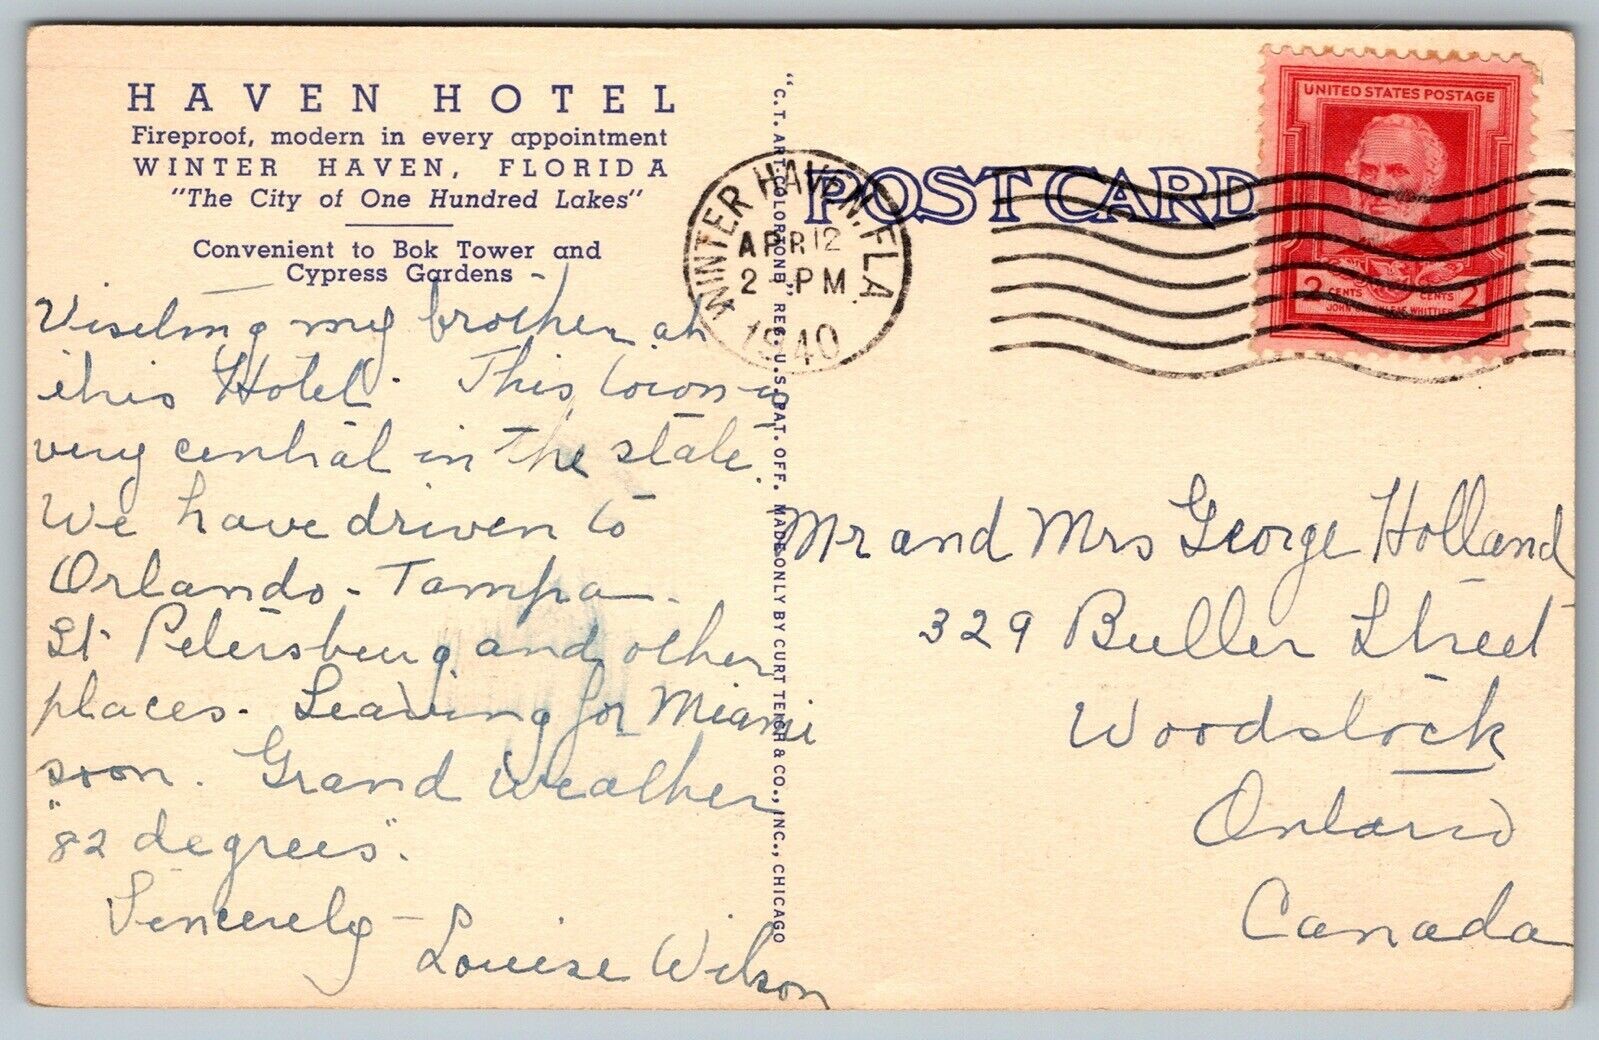 HAVEN HOTEL
Fireproof, modern in every appointment
WINTER HAVEN, FLORIDA
"The City of One Hundred Lakes"
Convenient to Bok Tower and
Cypress Gardens
Visiting my brother at
this Hotel. This town is
very central in the state.
We have driven to
Orlando - Tampa -
St Petersburg and other
places. Leaving for Miami
soon. Grand weather
"82 degrees".
Sincerely -
Louise Wilson
"C. T. ART-COLORTONE" REG. U.S. PAT. OFF. MADE ONLY BY CURT TEICH & CO., INC., CHICAGO
POST CARD
WINTER HAVEN, FLA.
APR 12
2 PM
1940
UNITED STATES POSTAGE
2 CENTS CENTS 2
JOHN GREENLEAF WHITTIER
Mr and Mrs George Holland
329 Buller Street
Woodstock
Ontario
Canada